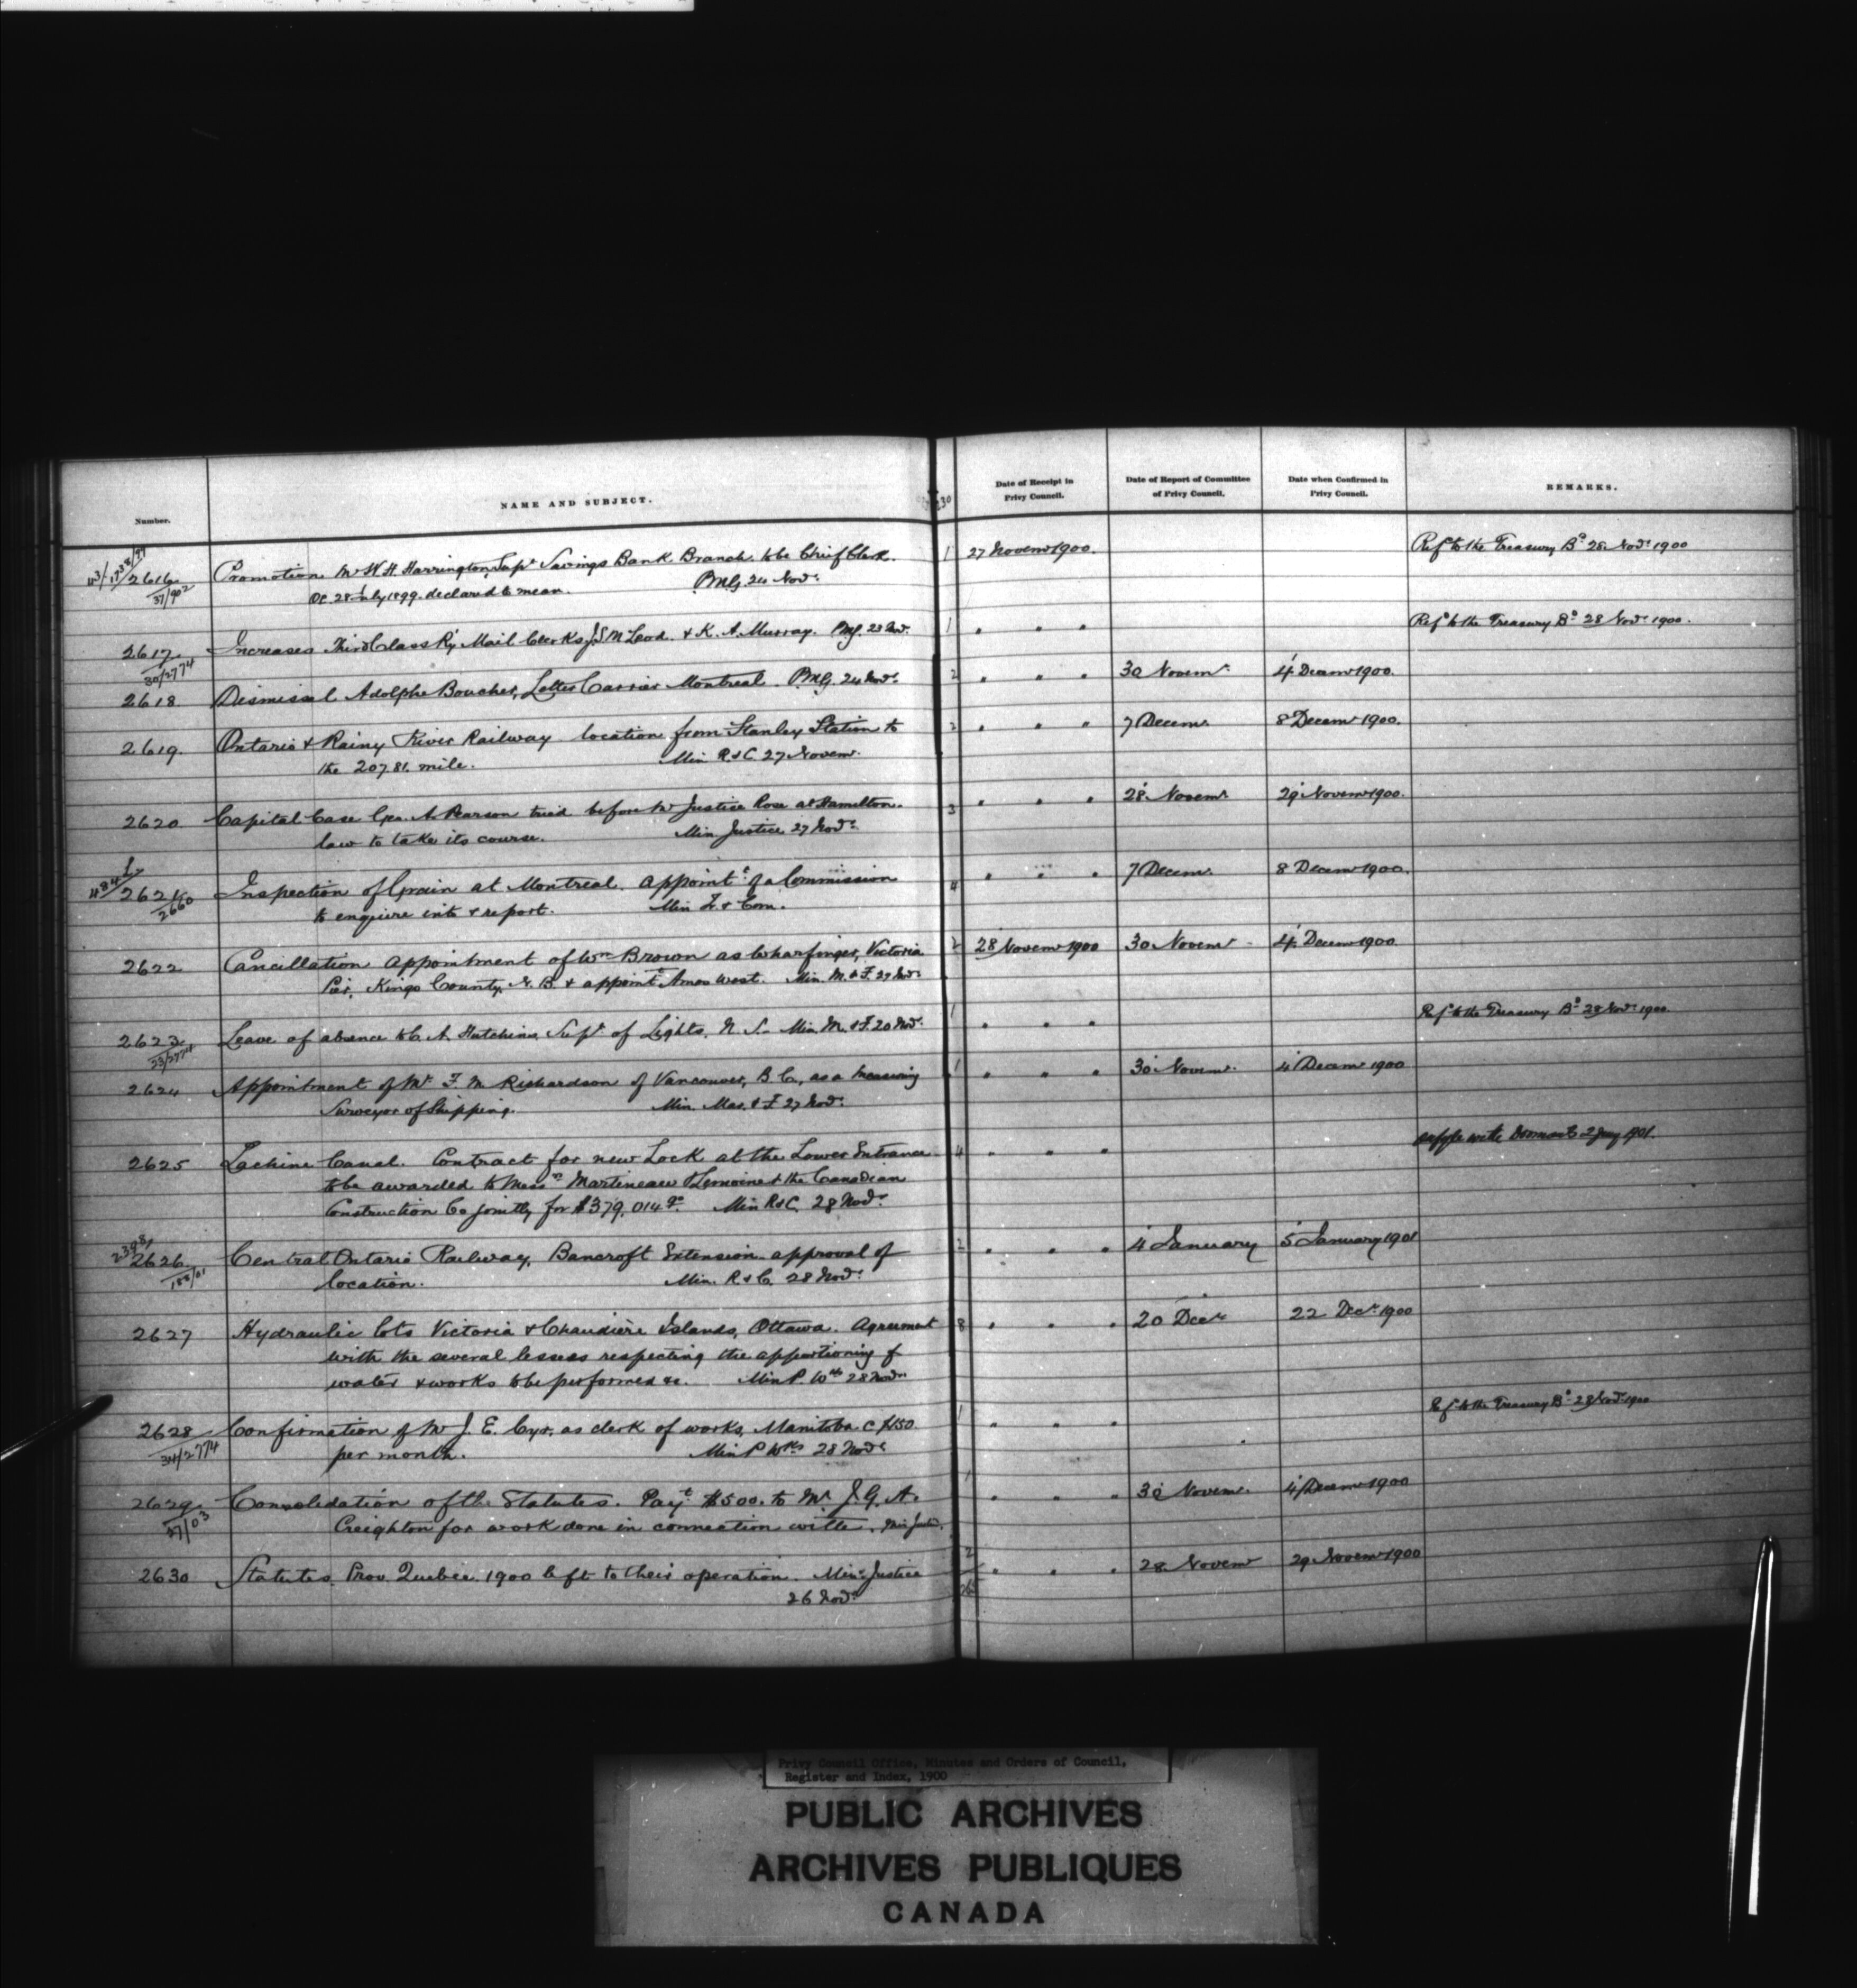 Number.
NAME AND SUBJECT.
230
Date of Receipt in Privy Council.
Date of Report of Committee of Privy Council.
Date when Confirmed in Privy Council.
REMARKS.
2616 37/902 Promotion Mr W. H. Harrington, Supt Savings Bank Branch to be Chief Clerk. 1 27 Novemr 1900. Refd to the Treasury Bd 28 Novr 1900
OC 28 July 1899 declared to mean. PMG. 24 Novr
2617 30/2774 Increases Third Class Ry Mail Clerks J. S. McLeod & K. A. Murray. PMG 23 Novr 1 " " " Refd to the Treasury Bd 28 Novr 1900.
2618 Dismissal Adolphe Boucher, Letter Carrier Montreal. PMG. 24 Novr 2 " " " 30 Novemr 4 Decemr 1900.
2619 Ontario & Rainy River Railway location from Stanley Station to 2 " " " 7 Decemr 8 Decemr 1900.
the 207.81. mile. Min R&C. 27 Novemr.
2620 Capital Case Geo. A. Pearson tried before Mr Justice Rose at Hamilton. 3 " " " 28 Novemr 29 Novemr 1900.
law to take its course. Min Justice 27 Novr
2621 2660 Inspection of Grain at Montreal. Appointt of a Commission 4 " " " 7 Decemr 8 Decemr 1900.
to enquire into & report. Min T. & Com.
2622 Cancillation appointment of Wm Brown as Wharfinger, Victoria 2 28 Novemr 1900 30 Novemr 4 Decemr 1900
Pier, Kings County, N.B. & appointt Amos West. Min. M. & F. 27 Novr
2623 33/2774 Leave of absence to C. A. Hutchins, Supt of Lights, N.S. Min. M. & F. 20 Novr. 1 " " " Refd to the Treasury Bd 28 Novr 1900
2624 Appointment of Mr. F. M. Richardson of Vancouver, B.C., as a Measuring 1 " " " 30 Novemr. 4 Decemr 1900
Surveyor of Shipping. Min. Mar. & F 27 Novr.
2625 Lachine Canal. Contract for new Lock at the Lower Entrance 4 " " " with dormants 2 Jany 1901.
to be awarded to Messrs Martineau & Lemoine & the Canadian
Construction Co jointly for $379,014. Min R&C. 28 Novr
2398 2626 188/01 Central Ontario Railway, Bancroft Extension approval of 2 " " " 4 January 5 January 1901
location. Min. R. & C. 28 Novr
2627 Hydraulic lots Victoria & Chaudière Islands, Ottawa. Agreement 8 " " " 20 Decr 22 Decr. 1900
with the several lessees respecting the apportioning of
water & works to be performed &c. Min P. Wks 28 Novr
2628 34/2774 Confirmation of Mr J. E. Cyr, as clerk of works, Manitoba @ $150 1 " " " Refd to the Treasury Bd 28 Novr 1900
per month. Min P Wks 28 Novr
2629 27/03 Consolidation of the Statutes. Payt $500. to Mr. J. G. A. 1 " " " 30 Novemr. 4 Decemr 1900
Creighton for work done in connection with. Min Justice.
2630 Statutes. Prov. Quebec 1900 left to their operation. Minr Justice 2 " " " 28 Novemr 29 Novemr 1900
26 Novr
Privy Council Office, Minutes and Orders of Council,
Register and Index, 1900
PUBLIC ARCHIVES
ARCHIVES PUBLIQUES
CANADA